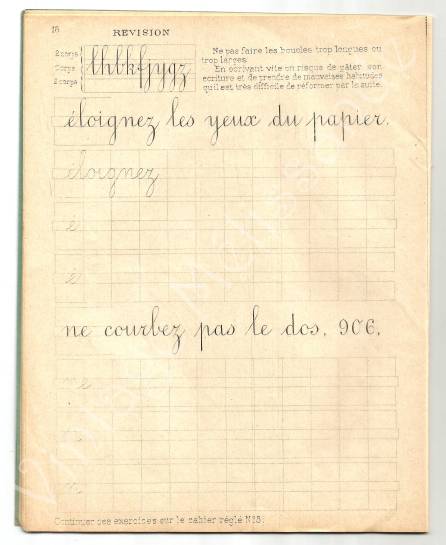 16
REVISION
2 corps
Corps
2 corps
lhbkfjygz
Ne pas faire les boucles trop longues ou
trop larges.
En écrivant vite on risque de gâter son
écriture et de prendre de mauvaises habitudes
qu'il est très difficile de réformer par la suite.
éloignez les yeux du papier.
éloignez
é
é
ne courbez pas le dos. 906.
ne
n
n
Continuer ces exercices sur le cahier réglé N°3.